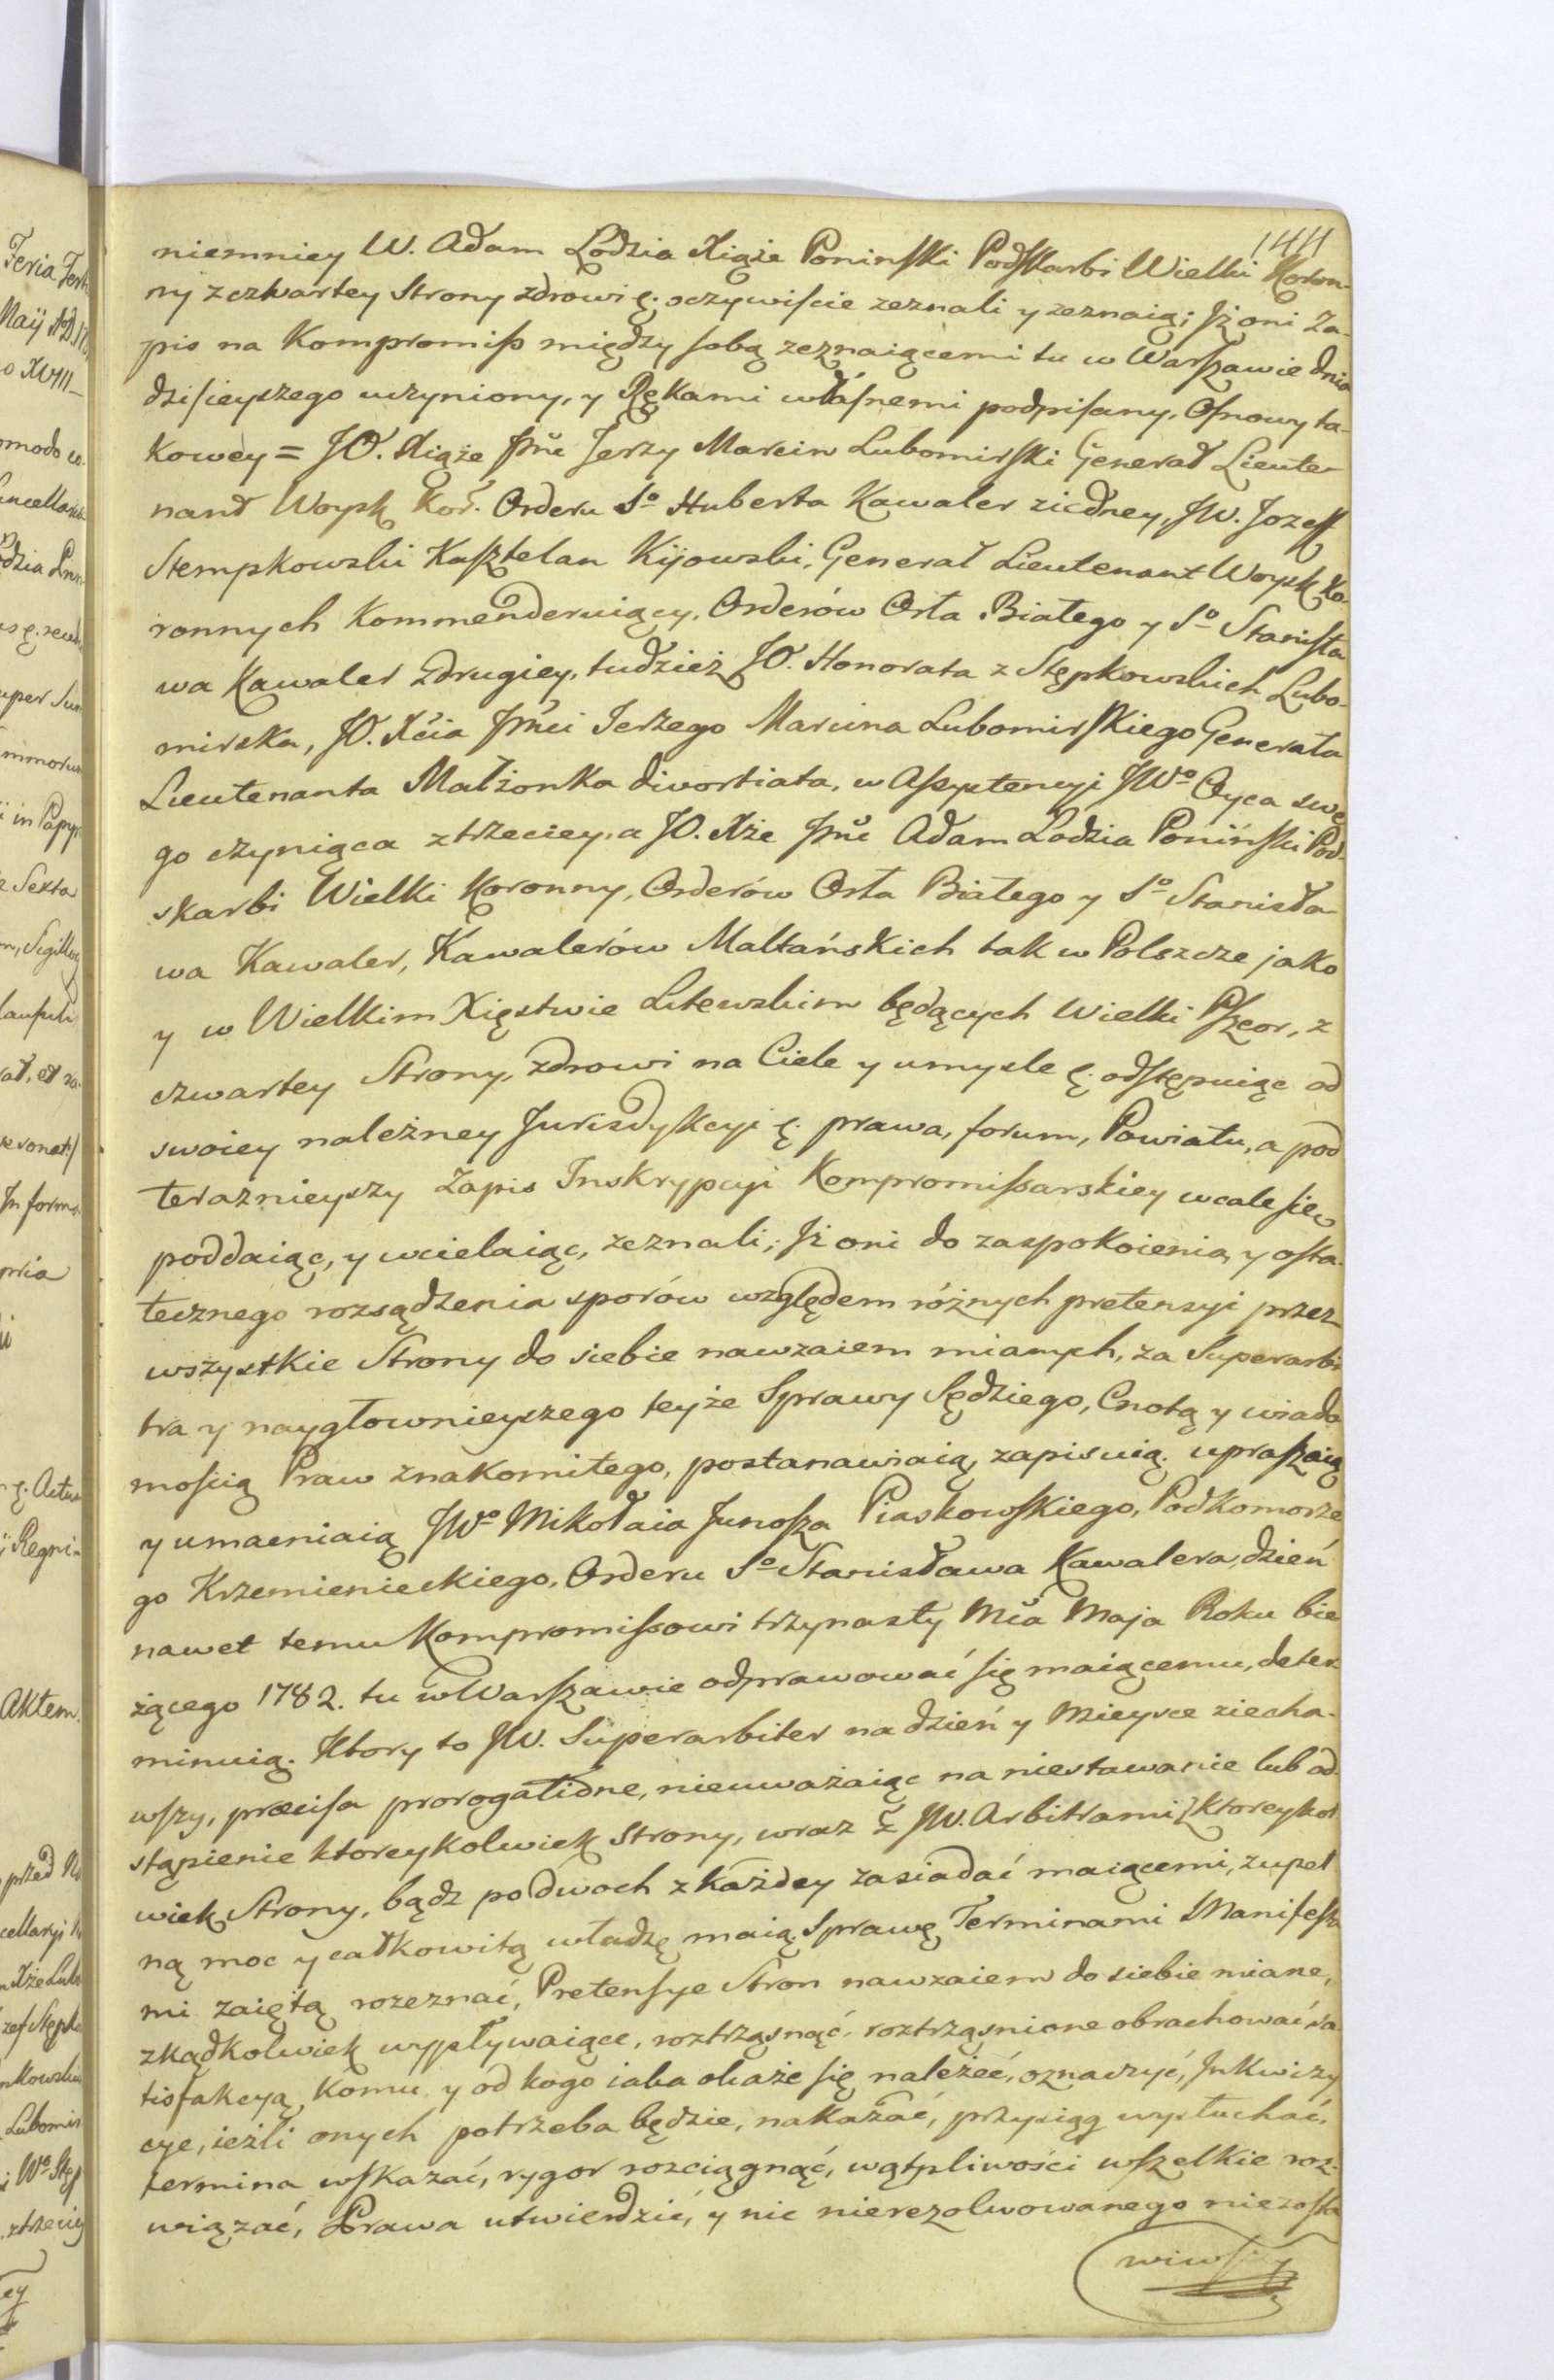 144
niemniey W. Adam Lodzia Xiąże Poninski Podskarbi Wielki Koron-
ny z czwartey Strony zdrowi ę. oczywiscie zeznali y zeznaią; Jż oni Za-
pis na Kompromiss między sobą zeznaiącemi tu w Warszawie dnia
dzisieyszego uczyniony, y Rękami własnemi podpisany, Osnowy ta-
kowey = JO. Xiąże Jmć Jerzy Marcin Lubomirski Generał Lieute-
nand Woysk Kor. Orderu So Huberta Kawaler ziedney, JW. Jozeff
Stempkowski Kasztelan Kijowski, Generał Lieutenant Woysk Ko-
ronnych Kommenderuiący, Orderów Orła Białego y So Stanisła
wa Kawaler zdrugiey, tudzież JO. Honorata z Stępkowskich Lubo-
mirska, JO. Xcia Jmci Jerzego Marcina Lubomirskiego Generała
Lieutenanta Małżonka divortiata, w Assystencyi JWo Oyca swe
go czyniąca z trzeciey, a JO. Xże Jmć Adam Lodzia Poniński Pod-
skarbi Wielki Koronny, Orderów Orła Białego y So Stanisła
wa Kawaler, Kawalerów Maltańskich tak w Polszcze jako
y w Wielkim Xięstwie Litewskim będących Wielki Przeor, z
czwartey Strony, zdrowi na Ciele y umysle ę. odstępuiąc od
swoiey należney Jurisdykcyi ę. prawa, forum, Powiatu, a pod
teraznieyszy Zapis Inskrypcyi Kompromissarskiey wcale się
poddaiąc, y wcielaiąc, zeznali; Jż oni do zaspokoienia y osta-
tecznego rozsądzenia sporów względem różnych pretensyi przez
wszystkie Strony do siebie nawzaiem mianych, za Superarbi
tra y naygłownieyszego teyże Sprawy Sędziego, Cnotą y wiado
mością Praw znakomitego, postanawiaią, zapisuią, upraszaią
y umacniaią JWo Mikołaia Junosza Piaskowskiego, Podkomorze
go Krzemienieckiego, Orderu So Stanisława Kawalera, dzień
nawet temu Kompromissowi trzynasty Mca Maja Roku bie
żącego 1782. tu w Warszawie odprawować się maiącemu, deter-
minuią. Ktory to JW. Superarbiter na dzień y Mieysce ziecha-
wszy, præcisa prorogatione, nieuważaiąc na niestawanie lub od
stąpienie ktoreykolwiek Strony, wraz z JW. Arbitrami z ktoreykol
wiek Strony, bądz po dwoch z każdey zasiadać maiącemi, zupeł
ną moc y całkowitą władzę maią, Sprawę Terminami Manifesta
mi zaiętą rozeznać, Pretensye Stron nawzaiem do siebie miane,
zkądkolwiek wypływaiące, roztrząsnąć, roztrząsnione obrachować, sa-
tisfakcyą, komu y od kogo iaka okaże się należeć, oznaczyć, Jnkwizy
cye, ieżli onych potrzeba będzie, nakazać, przysiąg wysłuchać,
termina wskazać, rygor rozciągnąć, wątpliwości wszelkie roz-
wiązać, Prawa utwierdzić, y nic nierezolwowanego niezosta
wiwszy